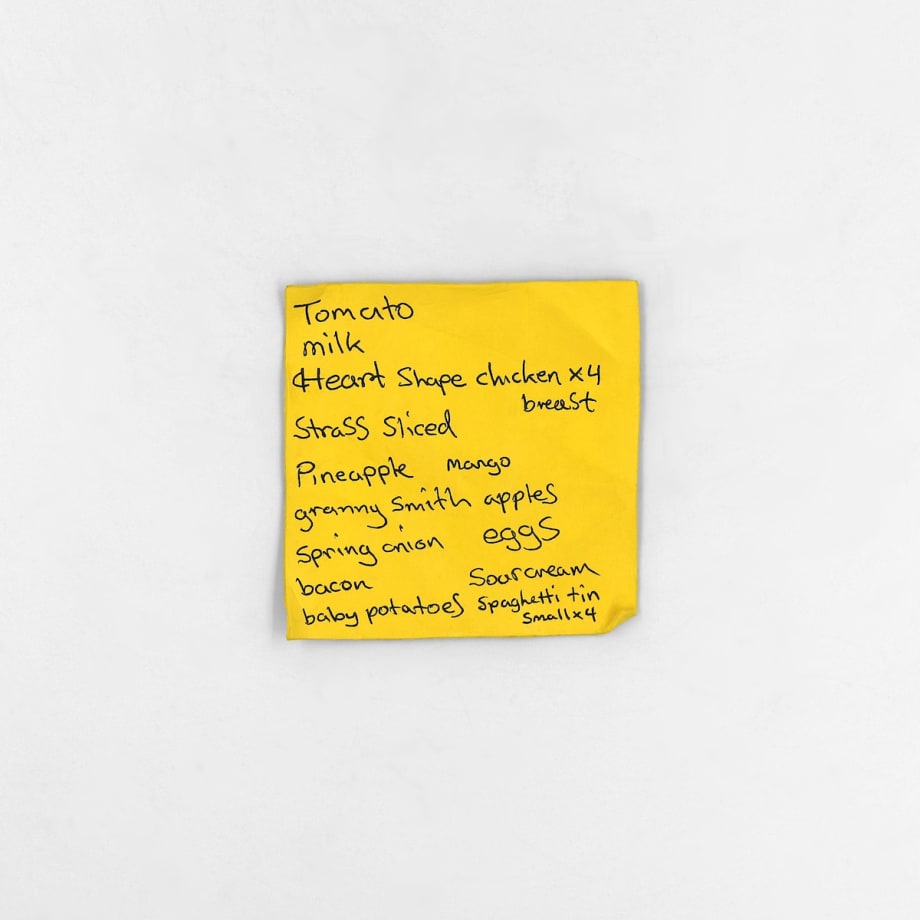 Tomato
milk
Heart Shape chicken x4
breast
Strass Sliced
Pineapple mango
granny Smith apples
Spring onion eggs
bacon Sour cream
baby potatoes Spaghetti tin
Small x4